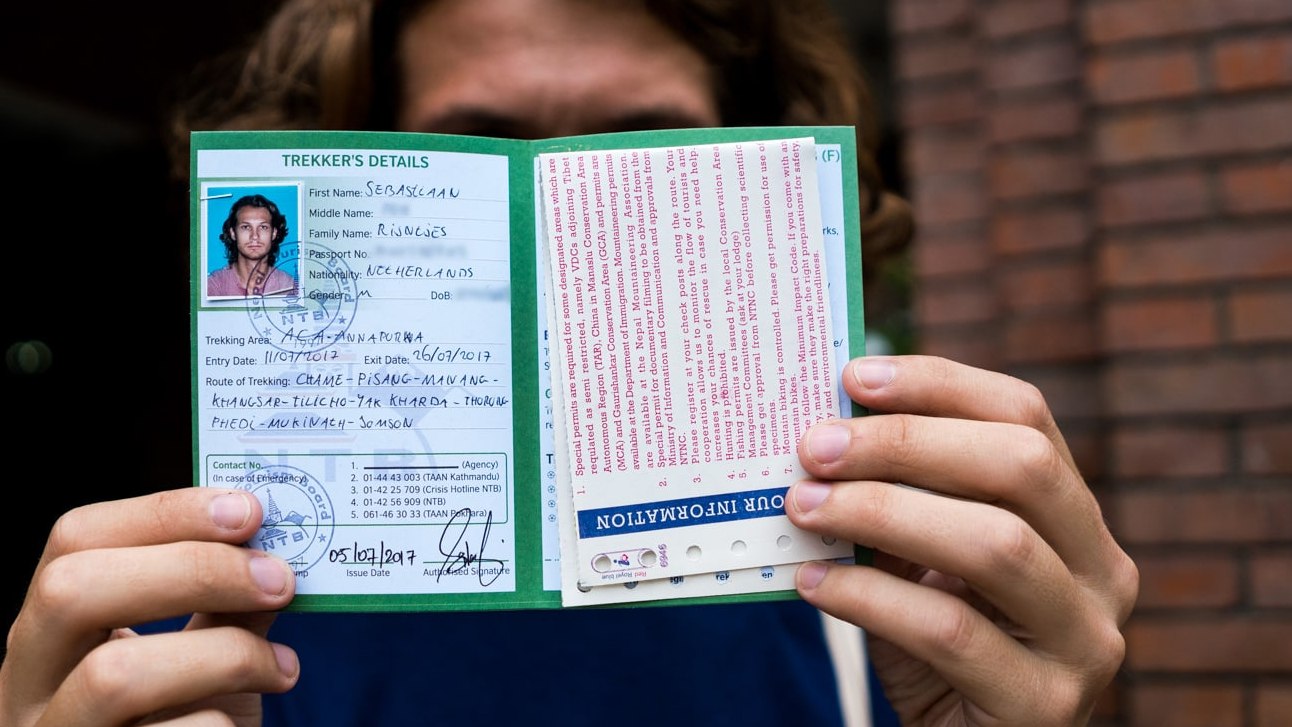 TREKKER'S DETAILS
First Name: SEBASTIAAN
Middle Name:
Family Name: RIJNTJES
Passport No.
Nationality: NETHERLANDS
Gender: M DoB:
Trekking Area: ACA-ANNAPURNA
Entry Date: 11/07/2017 Exit Date: 26/07/2017
Route of Trekking: CHAME-PISANG-MANANG-
KHANGSAR-TILICHO-YAK KHARDA-THORUNG
PHEDI-MUKINATH-JOMSON
Contact No.
(In case of Emergency)
1. (Agency)
2. 01-44 43 003 (TAAN Kathmandu)
3. 01-42 25 709 (Crisis Hotline NTB)
4. 01-42 56 909 (NTB)
5. 061-46 30 33 (TAAN Pokhara)
NTB
05/07/2017
Issue Date
Authorised Signature
OUR INFORMATION
1. Special permits are required for some designated areas which are
regulated as semi restricted, namely VDCs adjoining Tibet
Autonomous Region (TAR), China in Manaslu Conservation Area
(MCA) and Gaurishankar Conservation Area (GCA) and permits are
available at the Department of Immigration. Mountaineering permits
are available at the Nepal Mountaineering Association.
2. Special permit for documentary filming to be obtained from the
Ministry of Information and Communication and approvals from
NTNC.
3. Please register at your check posts along the route. Your
cooperation allows us to monitor the flow of tourists and
increases your chances of rescue in case you need help.
4. Hunting is prohibited.
5. Fishing permits are issued by the local Conservation Area
Management Committees (ask at your lodge)
6. Please get approval from NTNC before collecting scientific
specimens.
7. Moutain biking is controlled. Please get permission for use of
mountain bikes.
follow the Minimum Impact Code. If you come with an
make sure they make the right preparations for safety,
and environmental friendliness.
Red Royel blue
6946
(F)
rks,